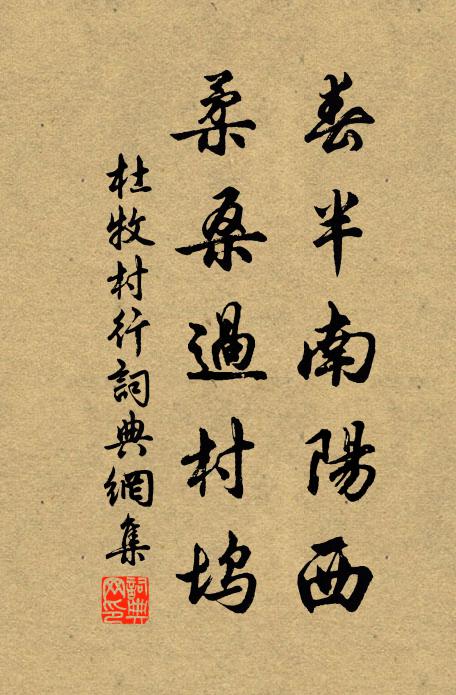 春半南陽西
柔桑過村塢
杜牧村行詞典網集
詞典
网印